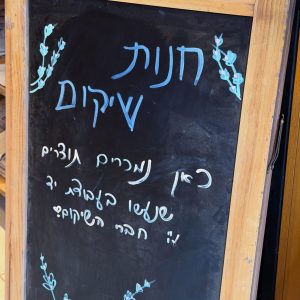 חנות
שיקום
כאן נמכרים תוצרים
שנעשו בעבודת יד
ע״י חברי השיקום!